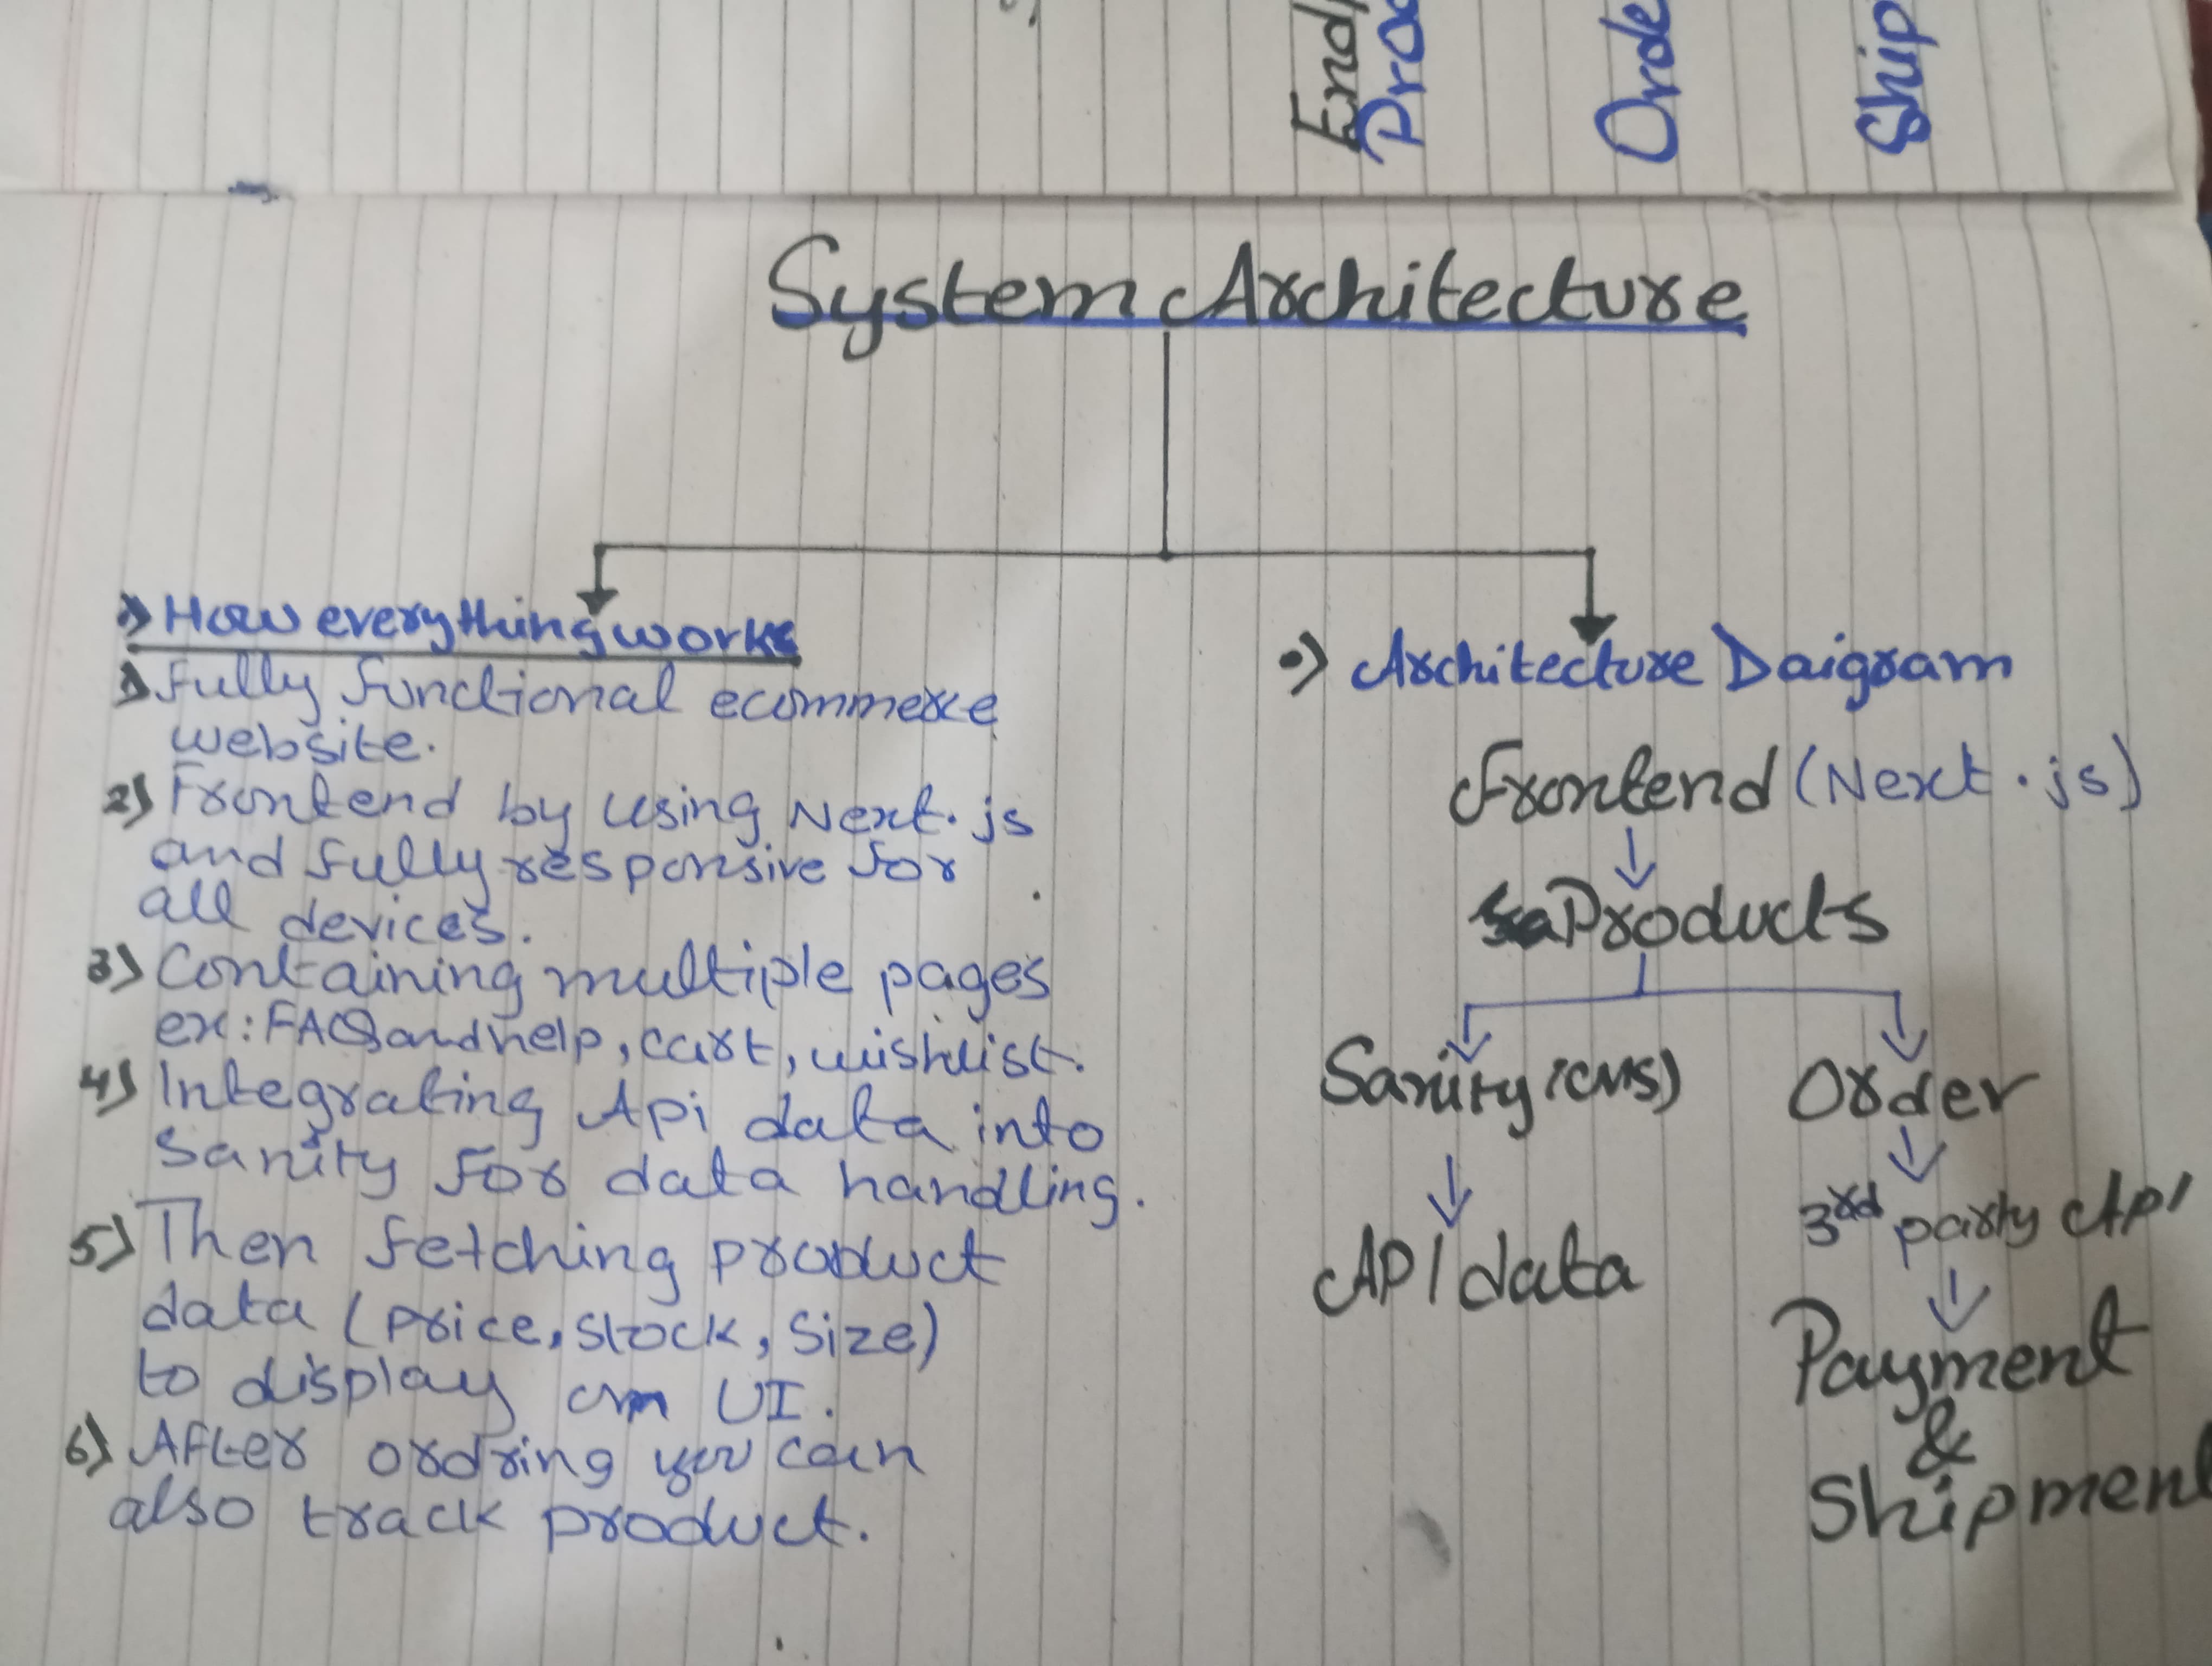 Orde
Ship
System Architecture
How everything works
1) Fully functional ecommerce
website.
2) Frontend by using Next.js
and fully responsive for
all devices.
3) Containing multiple pages
ex: FAQ and help, cart, wishlist.
4) Integrating Api data into
Sanity for data handling.
5) Then fetching product
data (price, stock, size)
to display on UI.
6) After ordring you can
also track product.
Architecture Daigram
Frontend (Next.js)
Products
Sanity (CMS)
Order
API data
3rd party API
Payment
&
Shipment